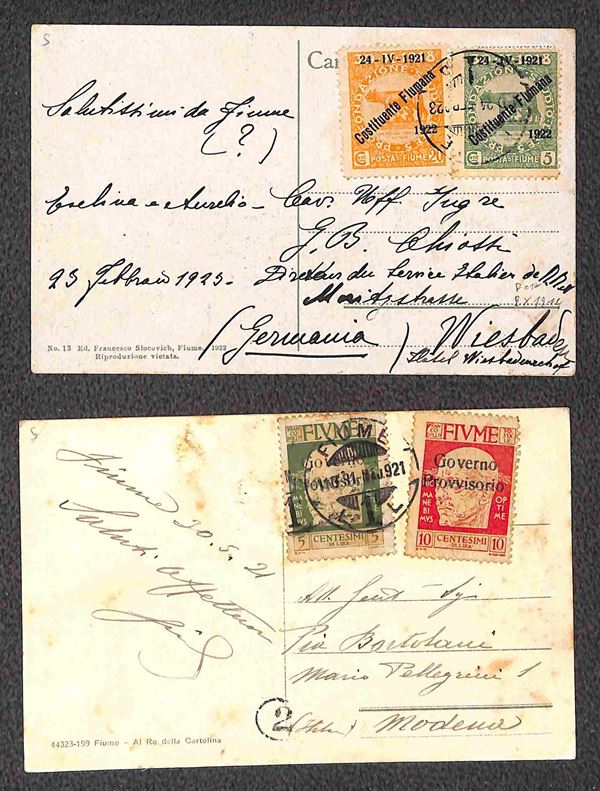 S
Car
24-IV-1921
Costituente Fiumana
1922
POSTA DI FIUME 20
24-IV-1921
Costituente Fiumana
1922
POSTA DI FIUME 5
Salutissimi da Fiume
(?)
Eselina e Aurelio
23 Febbraio 1923
Cav. Uff.
G.B. Chiossi
Directeur du Service Italien de
Moritzstrasse
(Germania) Wiesbaden
Hotel Wiesbadenerhof
No. 13 Ed. Francesco Slocovich, Fiume, 1922
Riproduzione vietata.
S
FIVME
Governo
5 5
CENTESIMI
DI LIRA
FIUME
1921
FIVME
Governo
Provvisorio
MANE BIMVS
OPTIME
10 CENTESIMI 10
DI LIRA
Fiume 30.5.21
Saluti affettuosi
Pia Bortolani
Mario Pellegrini 1
Modena
2
44323-199 Fiume - Al Re della Cartolina